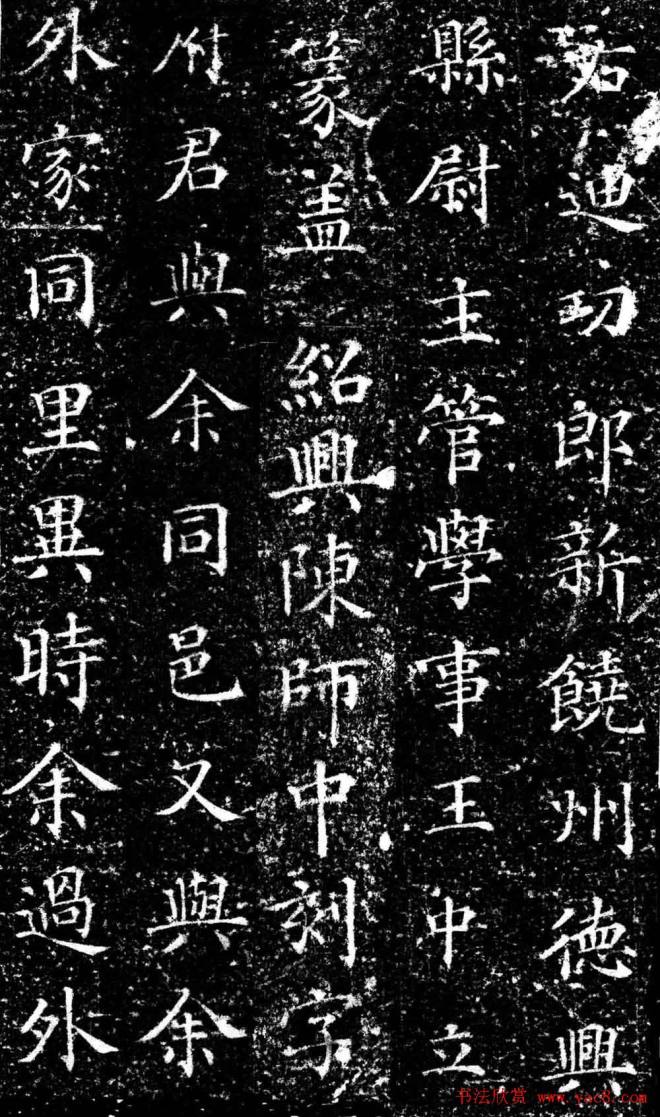 右迪功郎新饒州德興
縣尉主管學事王中立
篆盖 紹興陳師中刻字
府君與余同邑又與余
外家同里異時余過外
书法欣赏 www.yac8.com